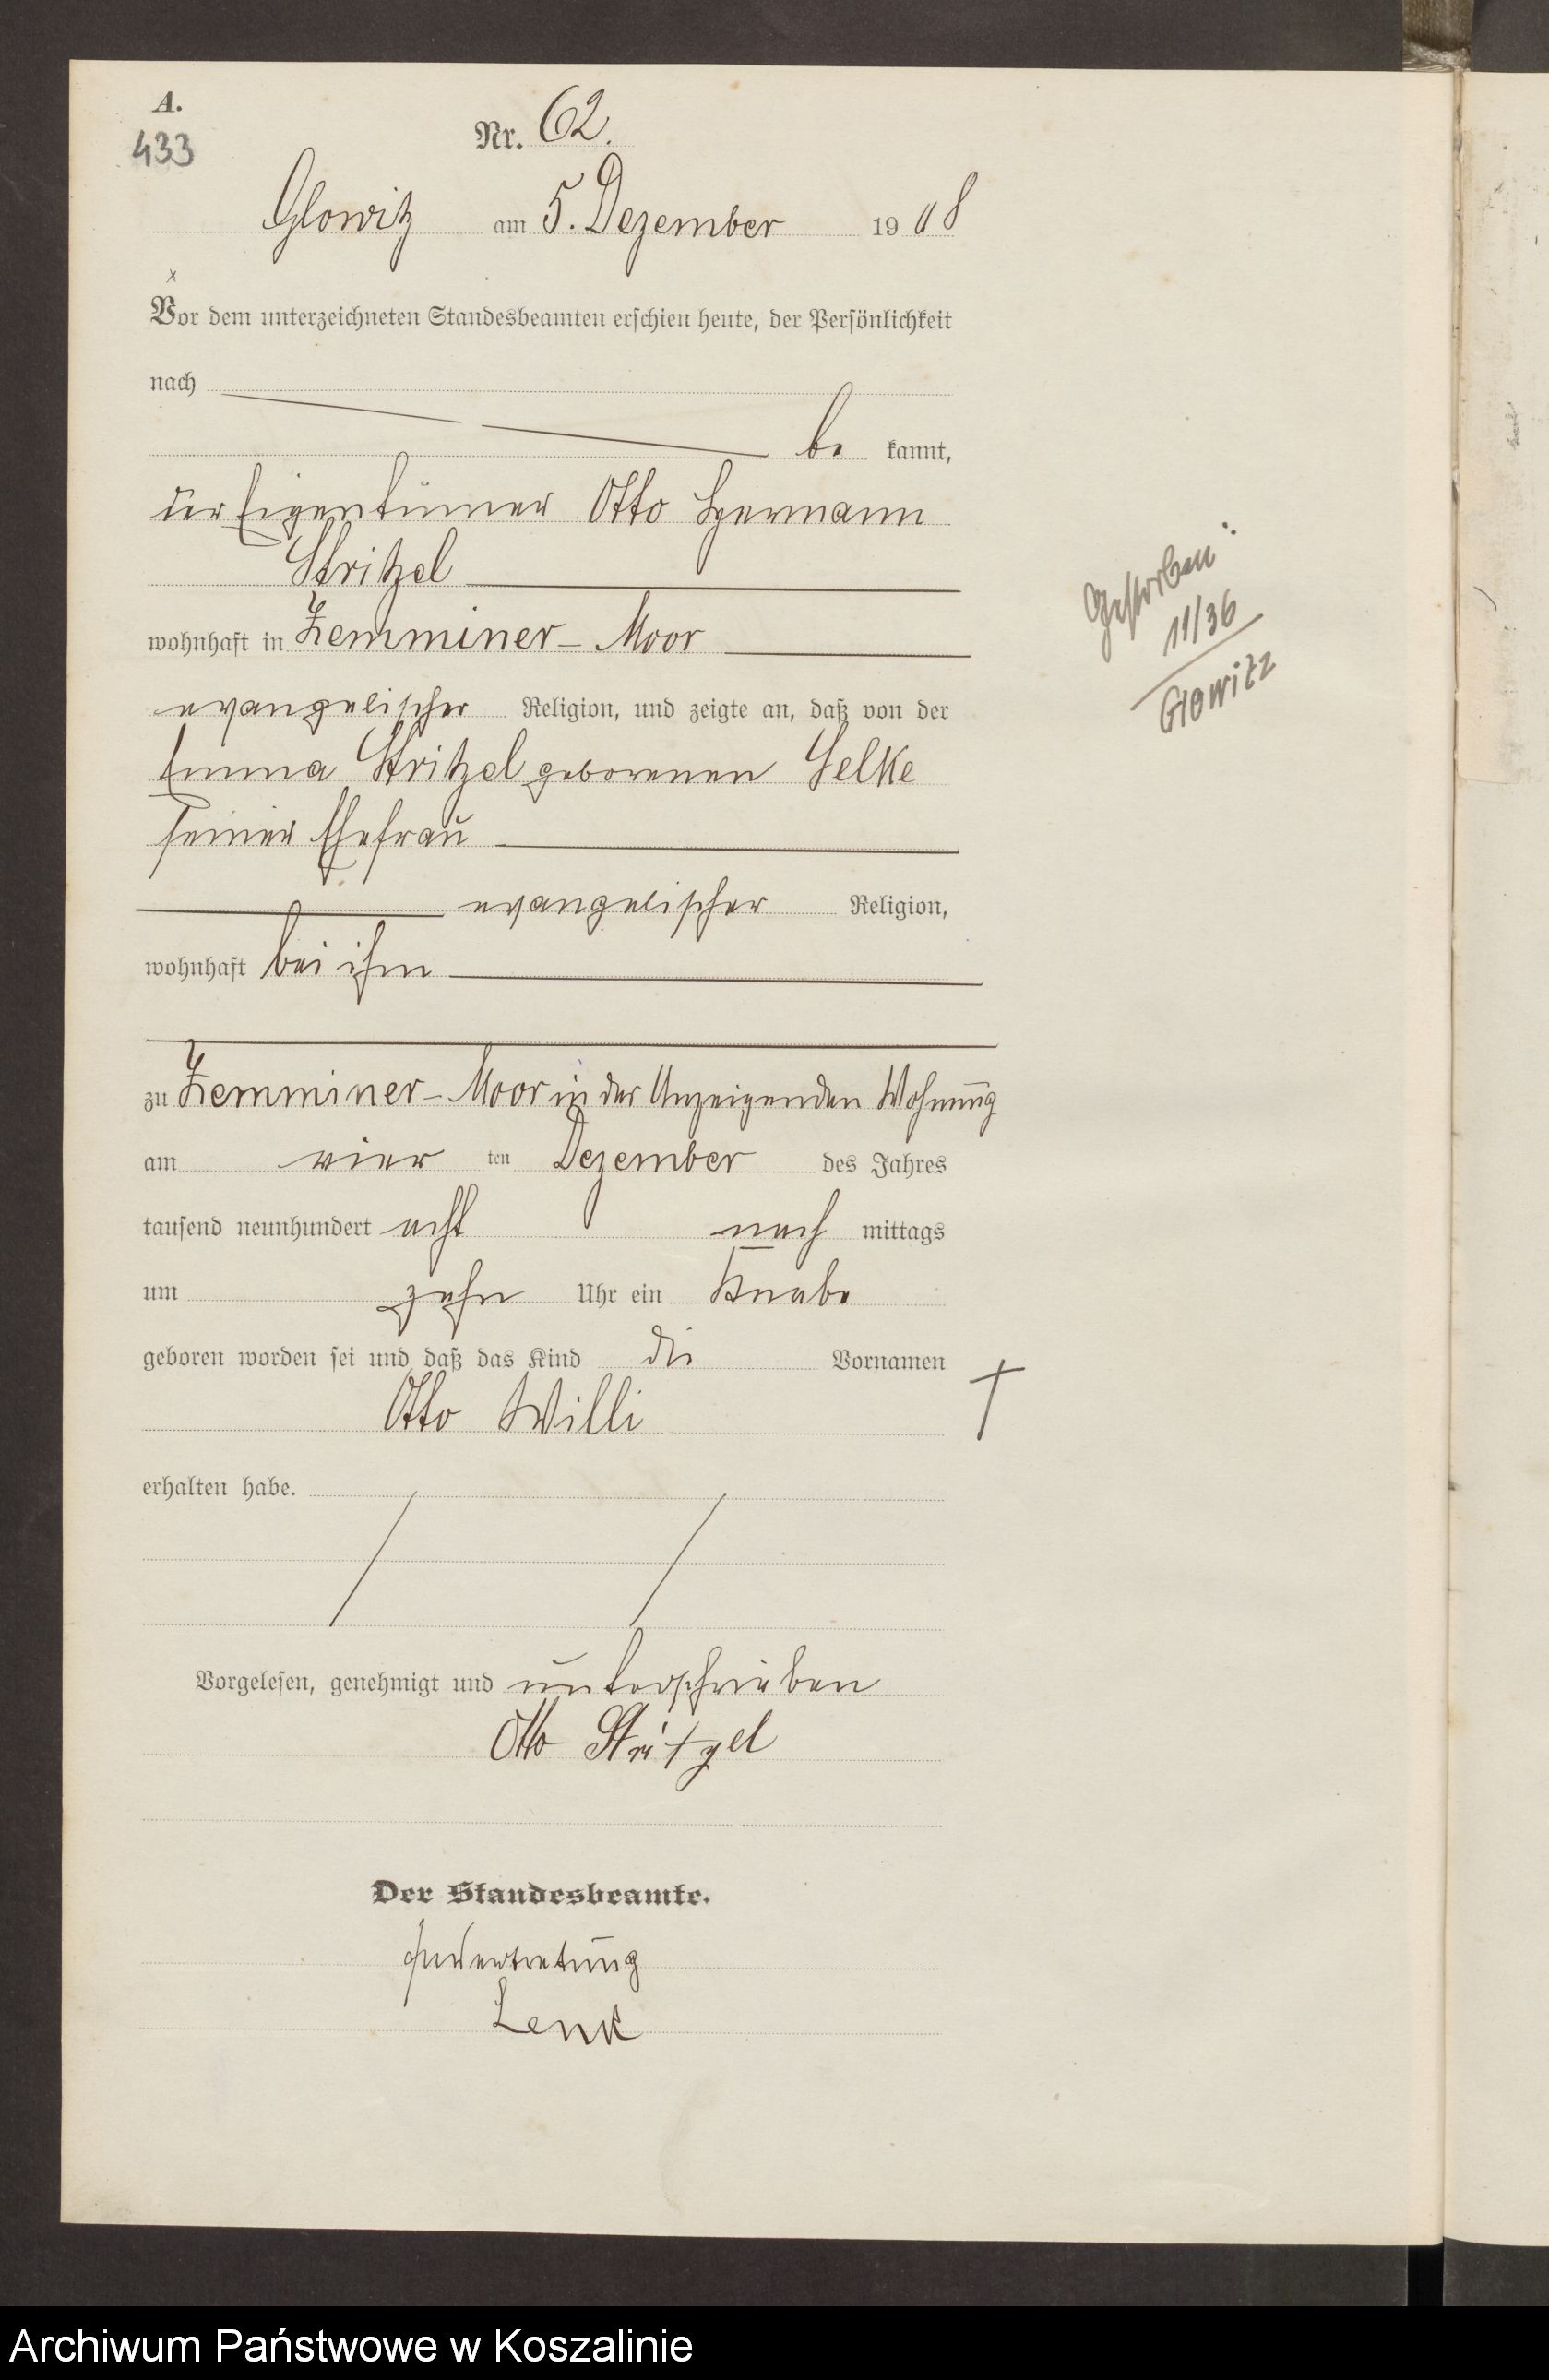 A.
433
Nr. 62.
Glowitz am 5. Dezember 1908
Vor dem unterzeichneten Standesbeamten erschien heute, der Persönlichkeit
nach
be kannt,
der Eigentümer Otto Hermann
Stritzel
wohnhaft in Zemminer-Moor
evangelischer Religion, und zeigte an, daß von der
Emma Stritzel geborenen Selke
seiner Ehefrau
evangelischer Religion,
wohnhaft bei ihm
zu Zemminer-Moor in der Anzeigenden Wohnung
am vier ten Dezember des Jahres
tausend neunhundert acht nach mittags
um zehn Uhr ein Knabe
geboren worden sei und daß das Kind die Vornamen
Otto Willi
erhalten habe.
Vorgelesen, genehmigt und unterschrieben
Otto Stritzel
Der Standesbeamte.
In Vertretung
Lenk
Gestorben:
11/36
Glowitz
Archiwum Państwowe w Koszalinie